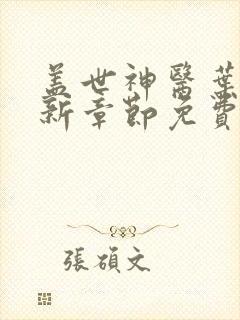 盖世神醫葉
新章節免費
張碩文